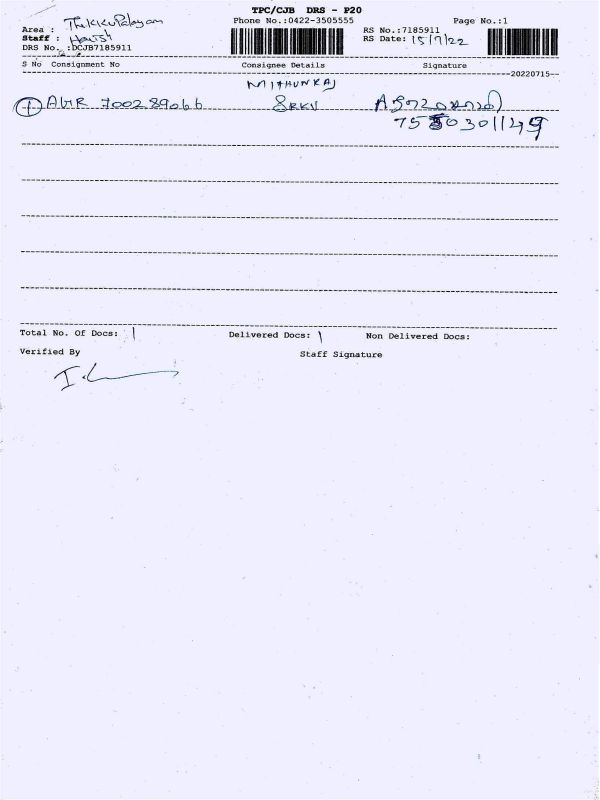 TPC/CJB DRS - P20
Phone No.:0422-3505555
Page No.:1
Area : ThekkuPalayam
Staff : Harish
DRS No. :DCJB7185911
RS No.:7185911
RS Date: 15/7/22
S No Consignment No Consignee Details Signature
20220715
MITHUNRAJ
1 700289066 SRKV
Total No. Of Docs: 1 Delivered Docs: 1 Non Delivered Docs:
Verified By Staff Signature